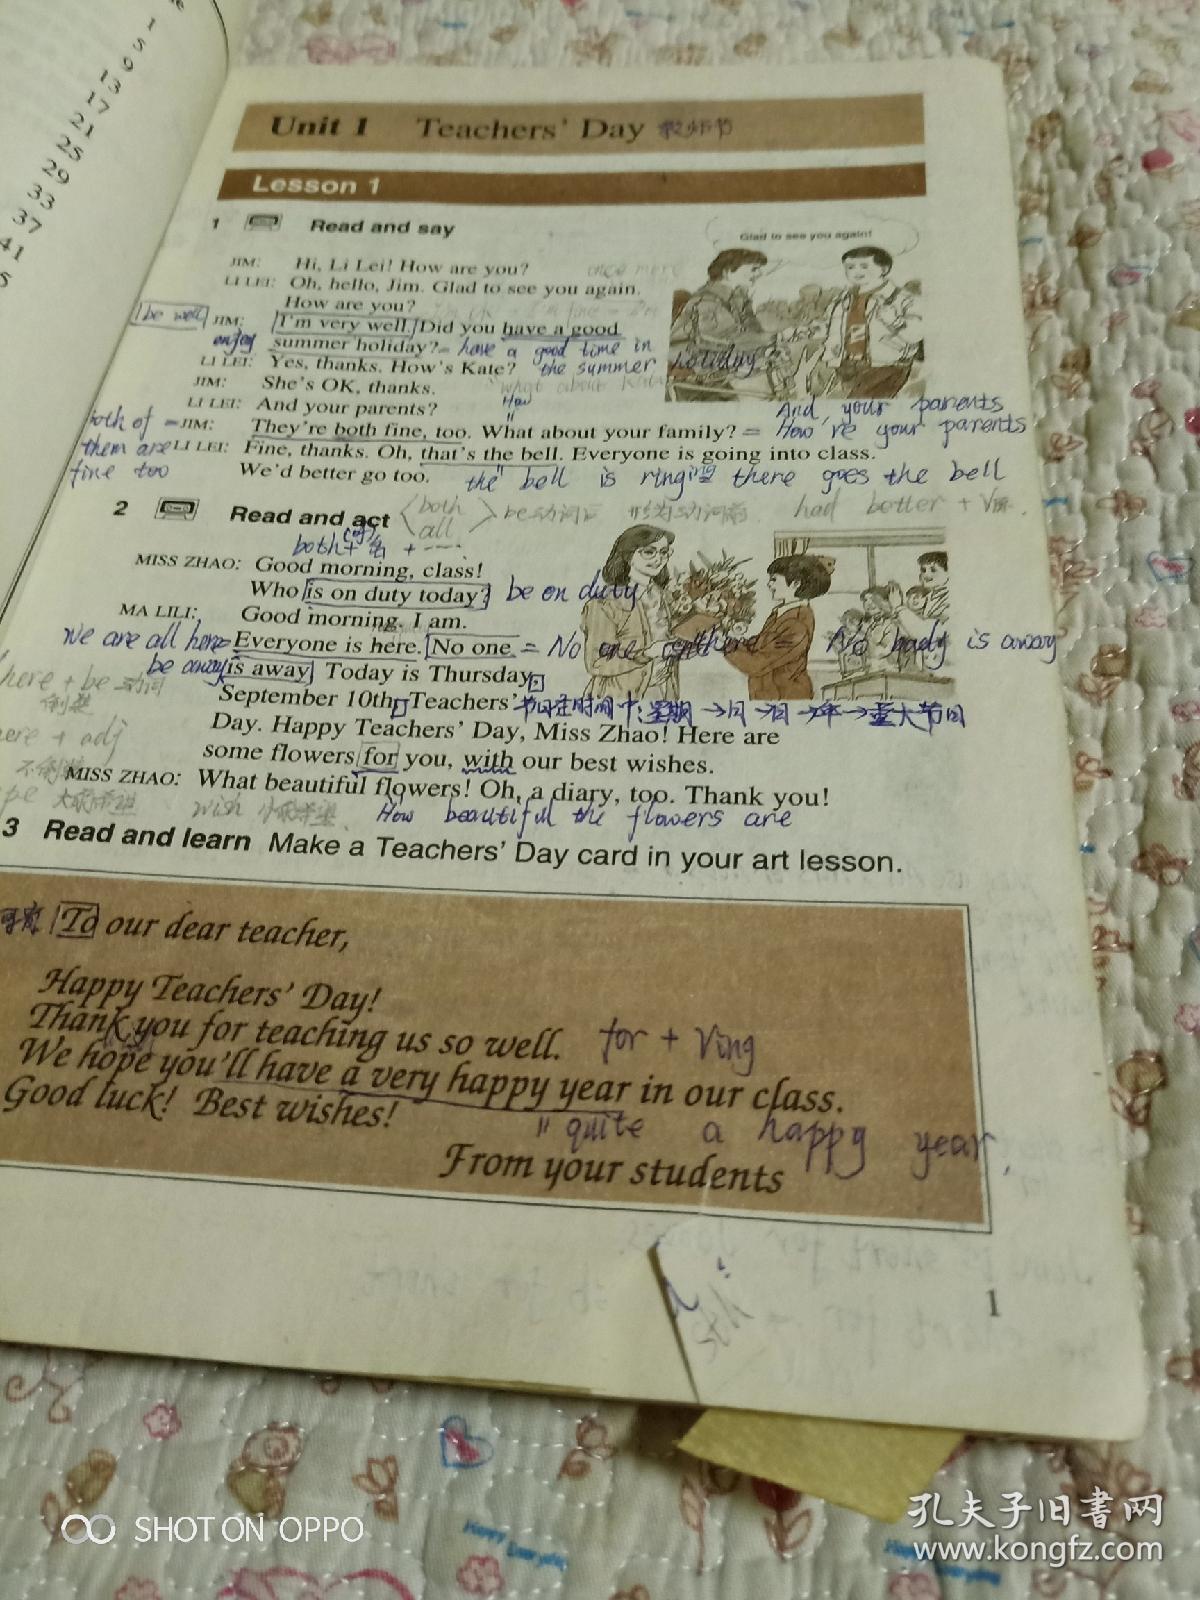 1
13
17
21
25
29
33
37
41
Unit 1 Teachers' Day 教师节
Lesson 1
1 Read and say
Glad to see you again!
JIM: Hi, Li Lei! How are you? once more
LI LEI: Oh, hello, Jim. Glad to see you again.
How are you?
be well JIM: I'm very well. Did you have a good
enjoy summer holiday? = have a good time in
LI LEI: Yes, thanks. How's Kate? the summer holiday
JIM: She's OK, thanks. what about Kate
LI LEI: And your parents? How And your parents
both of = JIM: They're both fine, too. What about your family? = How're your parents
them are LI LEI: Fine, thanks. Oh, that's the bell. Everyone is going into class.
fine too We'd better go too. the bell is ringing there goes the bell
2 Read and act both all be动词后 had better + V原.
both + 名 +
MISS ZHAO: Good morning, class!
Who is on duty today? be on duty
MA LILI: Good morning. I am.
we are all here Everyone is here. No one = No one here = No body is away
be away is away. Today is Thursday,
here + be 动词
倒装
September 10th, Teachers' 节日 时间 中: 星期→日→月→年→重大节日
Day. Happy Teachers' Day, Miss Zhao! Here are
here + adj
some flowers for you, with our best wishes.
不倒装
MISS ZHAO: What beautiful flowers! Oh, a diary, too. Thank you!
wish How beautiful the flowers are
3 Read and learn Make a Teachers' Day card in your art lesson.
To our dear teacher,
Happy Teachers' Day!
Thank you for teaching us so well. for + Ving
We hope you'll have a very happy year in our class.
Good luck! Best wishes! = quite a happy year.
From your students
1
SHOT ON OPPO
孔夫子旧书网
www.kongfz.com